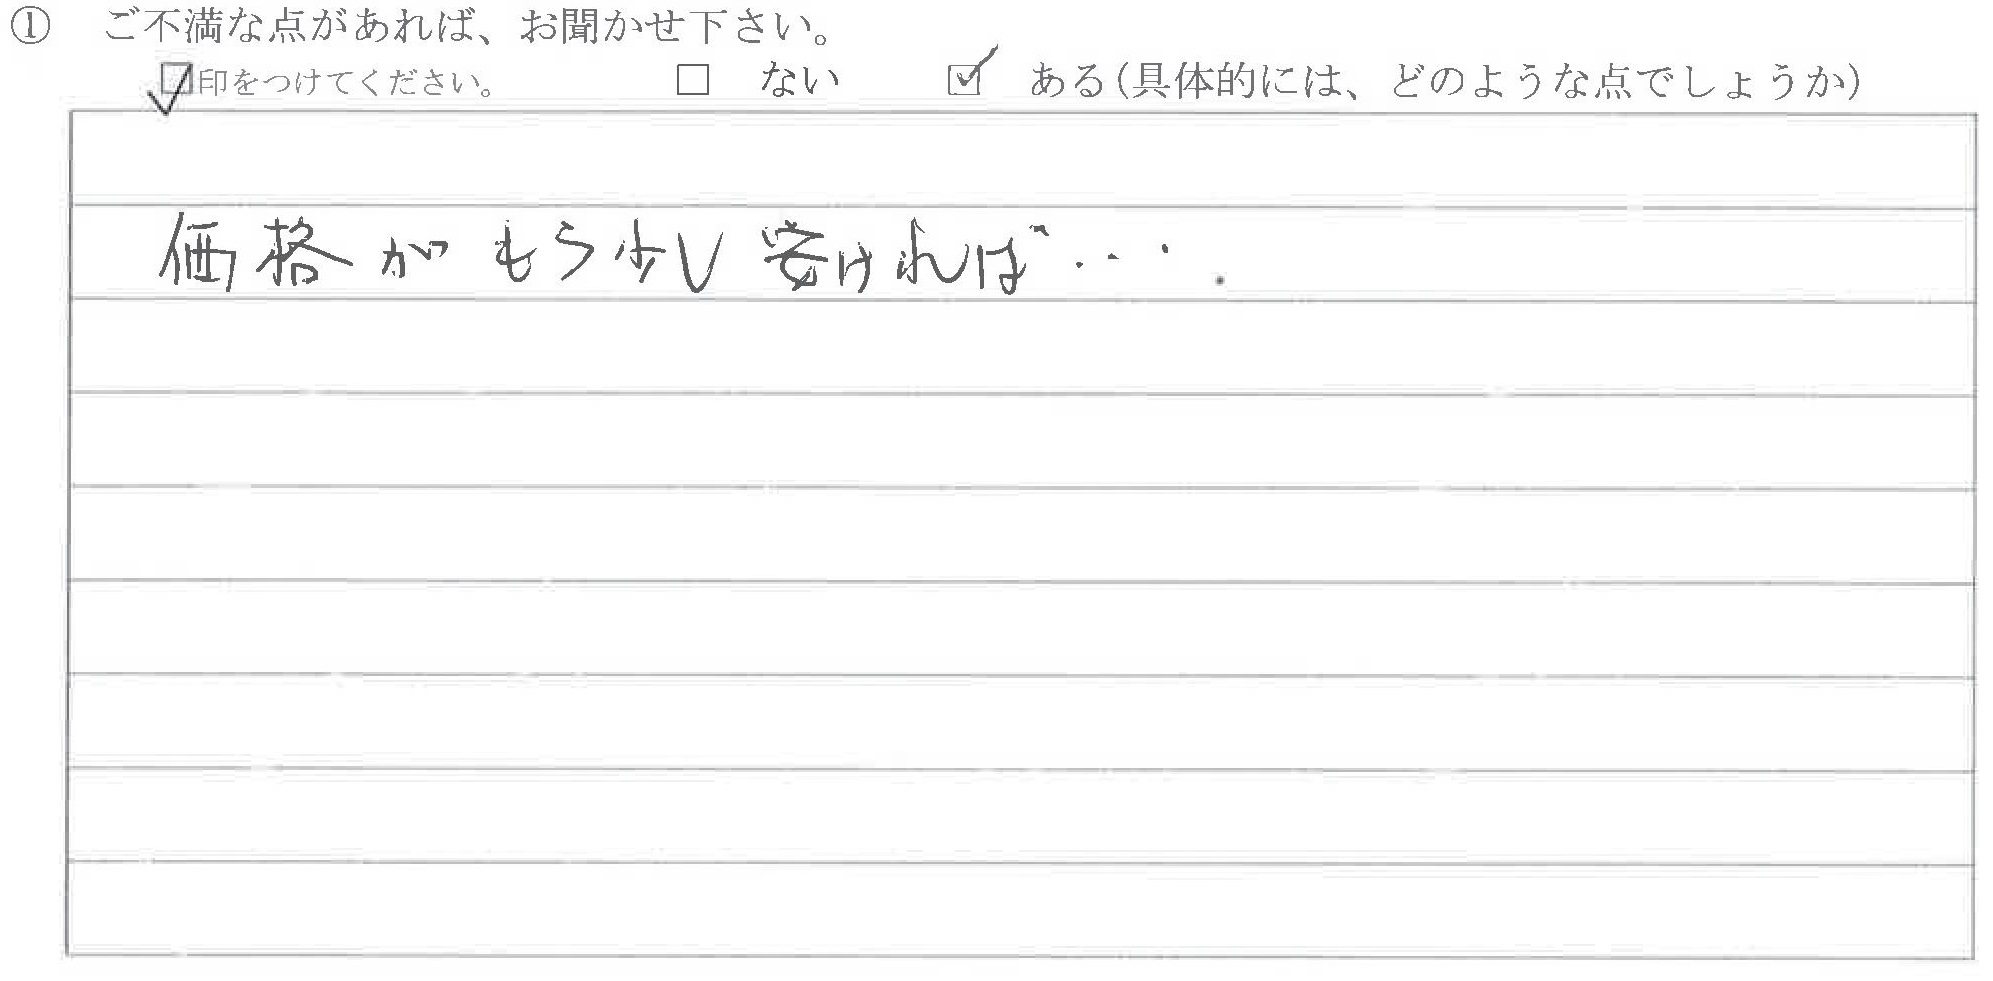 ① ご不満な点があれば、お聞かせ下さい。
☑印をつけてください。 □ ない ☑ ある(具体的には、どのような点でしょうか)
価格がもう少し安ければ・・・・.